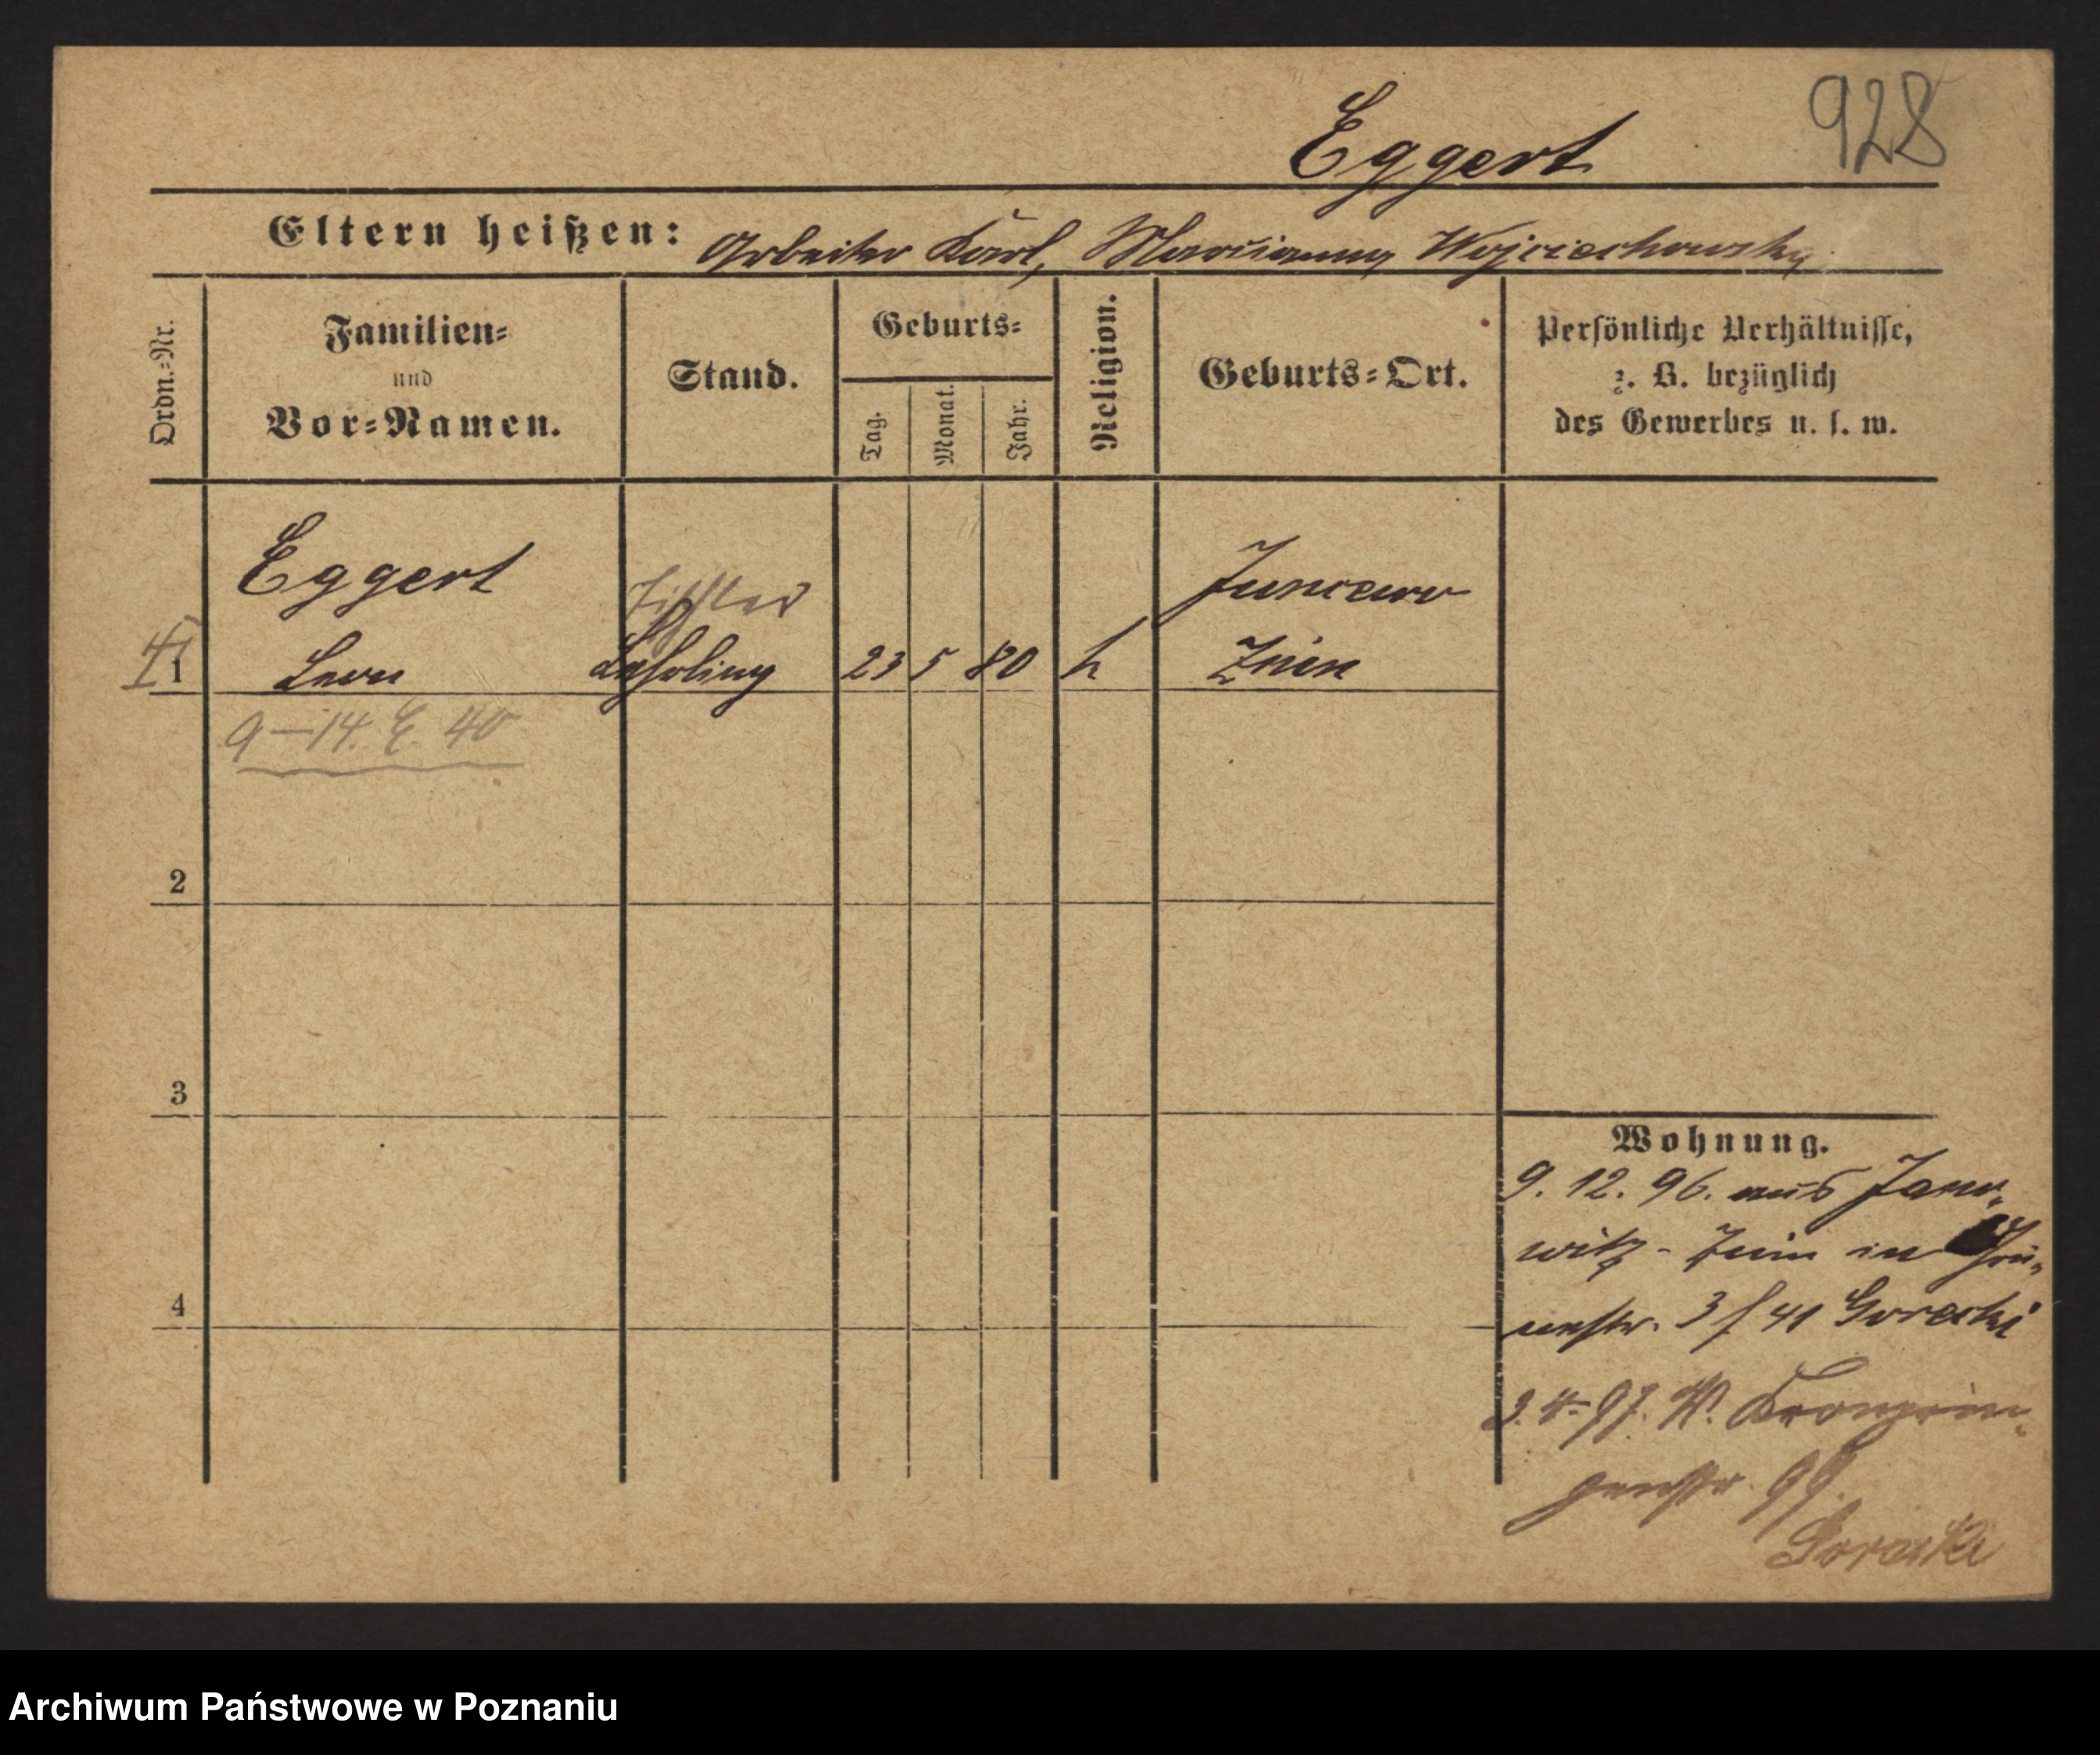 928
Eggert
Eltern heißen: Arbeiter Karl, Marianna Wojciechowska
Ordn.-Nr.
Familien-
und
Vor-Namen.
Stand.
Geburts-
Tag.
Monat.
Jahr.
Religion.
Geburts-Ort.
Persönliche Verhältnisse,
z. B. bezüglich
des Gewerbes u. s. w.
Eggert
Tischler
Juncewo
1 Leon Lehrling 23 5 80 k Znin
9-14. E. 40
2
3
4
Wohnung.
9. 12. 96. aus Jano-
witz - Znin in
3 f 41 Gorecki
3. 4. 97. W. Kronprin-
zenstr. 99.
Gorecki
Archiwum Państwowe w Poznaniu